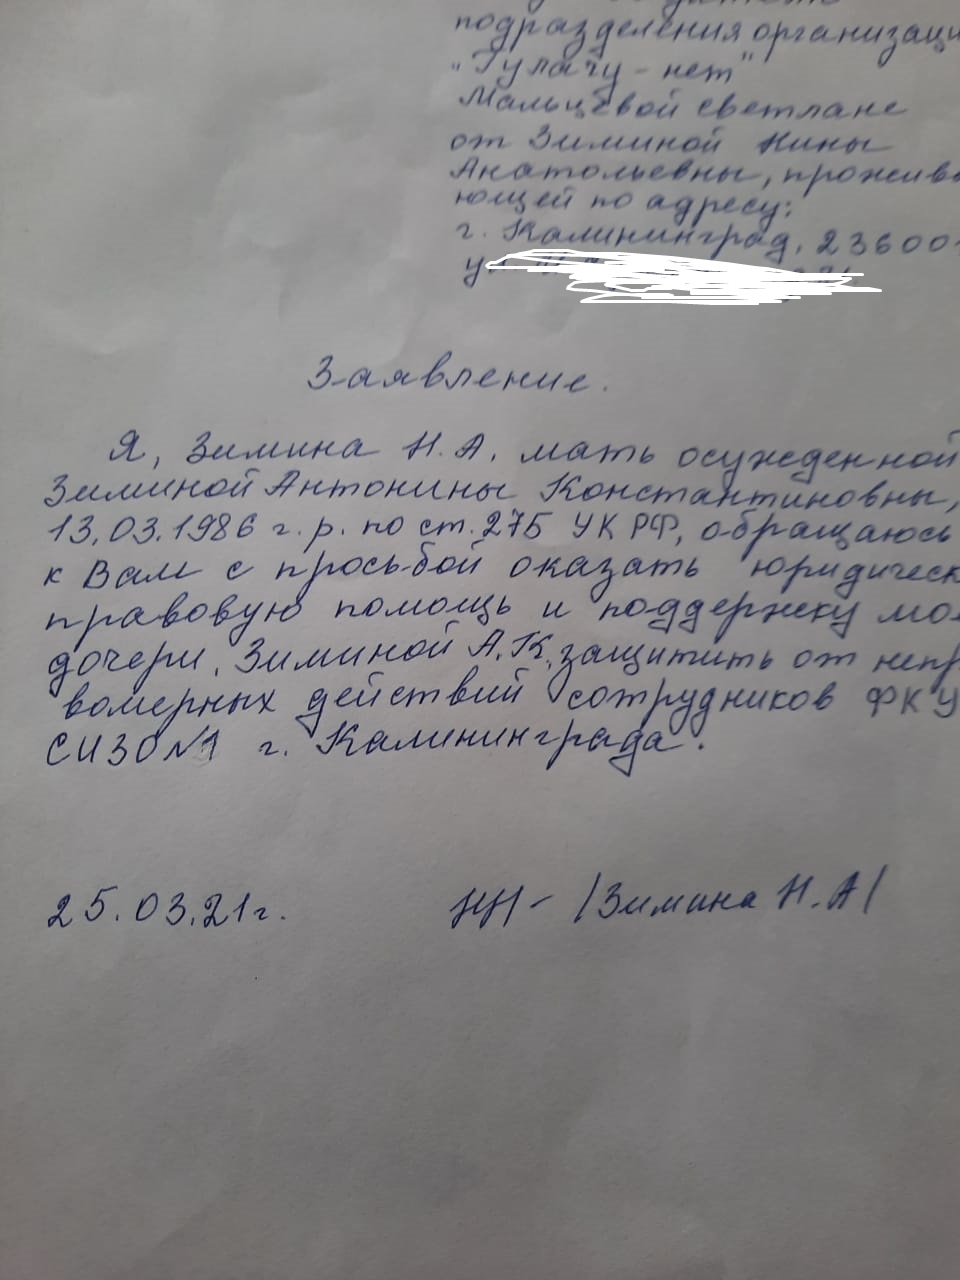 подразделения организаци
"Гулагу - нет"
Мальцевой светлане
от Зиминой Нины
Анатольевны, прожива
ющей по адресу:
г. Калининград, 23600
Заявление.
Я, Зимина Н.А. мать осужденной
Зиминой Антонины Константиновны,
13.03.1986 г.р. по ст. 275 УК РФ, обращаюсь
к Вам с просьбой оказать юридическ
правовую помощь и поддержку мо
дочери, Зиминой А.К. защитить от непр
вомерных действий сотрудников ФКУ
СИЗО №1 г. Калининграда.
25.03.21г. /Зимина Н.А/